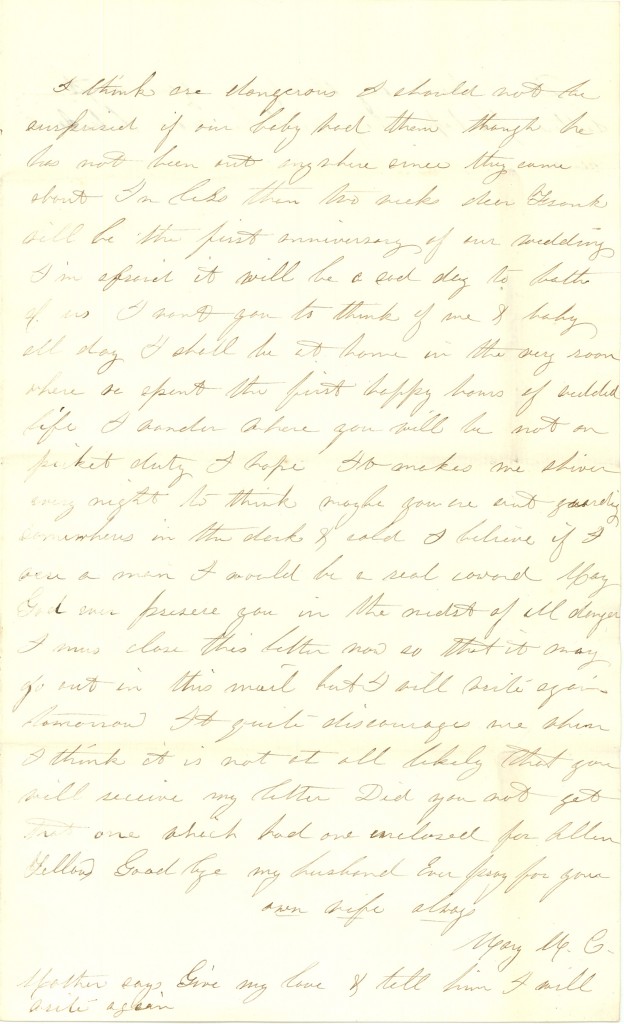 I think are dangerous I should not be
surprised if our baby had them though he
has not been out anywhere since they came
about In less then two weeks dear Frank
will be the first anniversary of our wedding
I'm afraid it will be a sad day to both
of us I want you to think of me & baby
all day I shall be at home in the very room
where we spent the first happy hours of wedded
life I wonder where you will be not on
picket duty I hope It makes me shiver
every night to think maybe you are out guarding
somewheres in the dark & cold I believe if I
were a man I would be a real coward May
God ever preserve you in the midst of all danger
I mus close this letter now so that it may
go out in this mail but I will write again
tomorrow It quite discourages me when
I think it is not at all likely that you
will receive my letter Did you not get
that one which had one enclosed for Allen
Good bye my husband Ever pray for your
own wife always
Mary M. C.
Mother says Give my love & tell him I will
write again